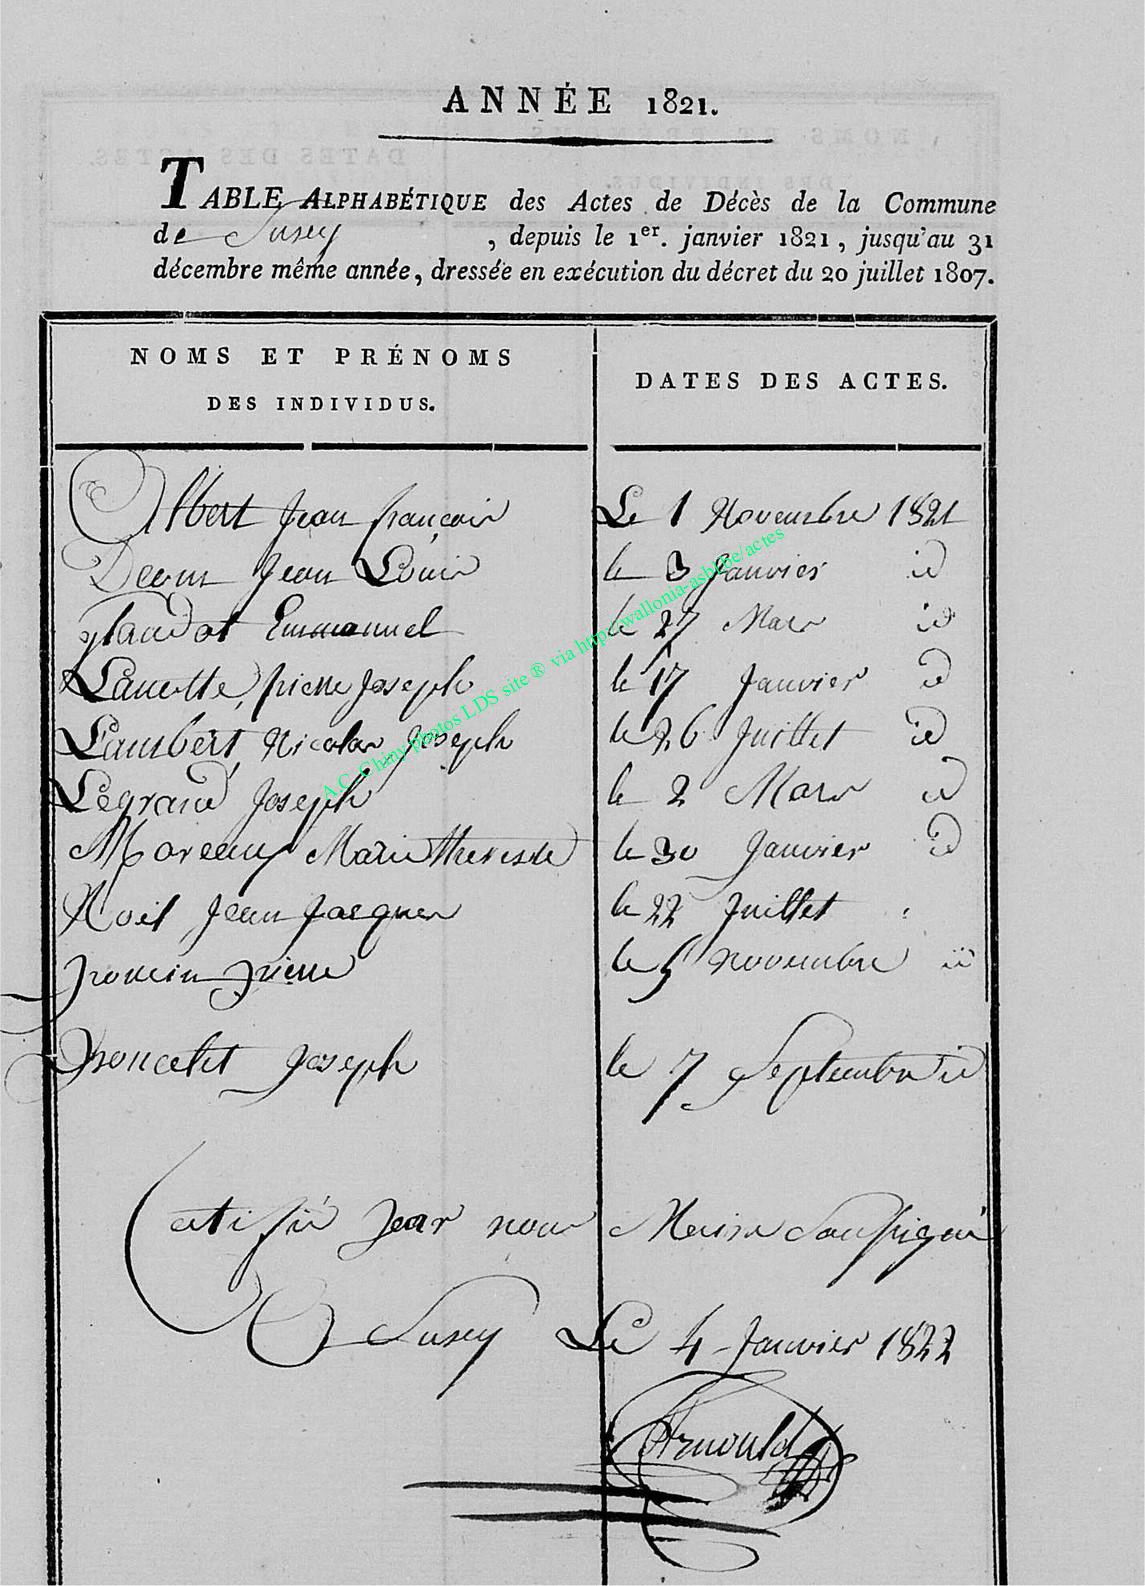 ANNÉE 1821.
TABLE ALPHABÉTIQUE des Actes de Décès de la Commune
de Susey, depuis le 1er. janvier 1821, jusqu'au 31
décembre même année, dressée en exécution du décret du 20 juillet 1807.
NOMS ET PRÉNOMS
DES INDIVIDUS.
DATES DES ACTES.
Albert Jean françois Le 1 Novembre 1821
Jean Louis le 3 Janvier id
glaudot Emmanuel le 27 Mars id
Lanotte, pierre Joseph le 17 Janvier id
Lambert, Nicolas Joseph le 26 Juillet id
Legrand Joseph le 2 Mars id
Moreaux Marie theresse le 30 Janvier id
Noël Jean Jacques le 22 Juillet
pierre le 5 novembre id
Poncelet Joseph le 7 Septembre id
Certifié par nous Maire Soussigné
A Susey Le 4 Janvier 1822
Arnould
A.C. Chiny photos LDS site ® via http://wallonia-asbl.be/actes